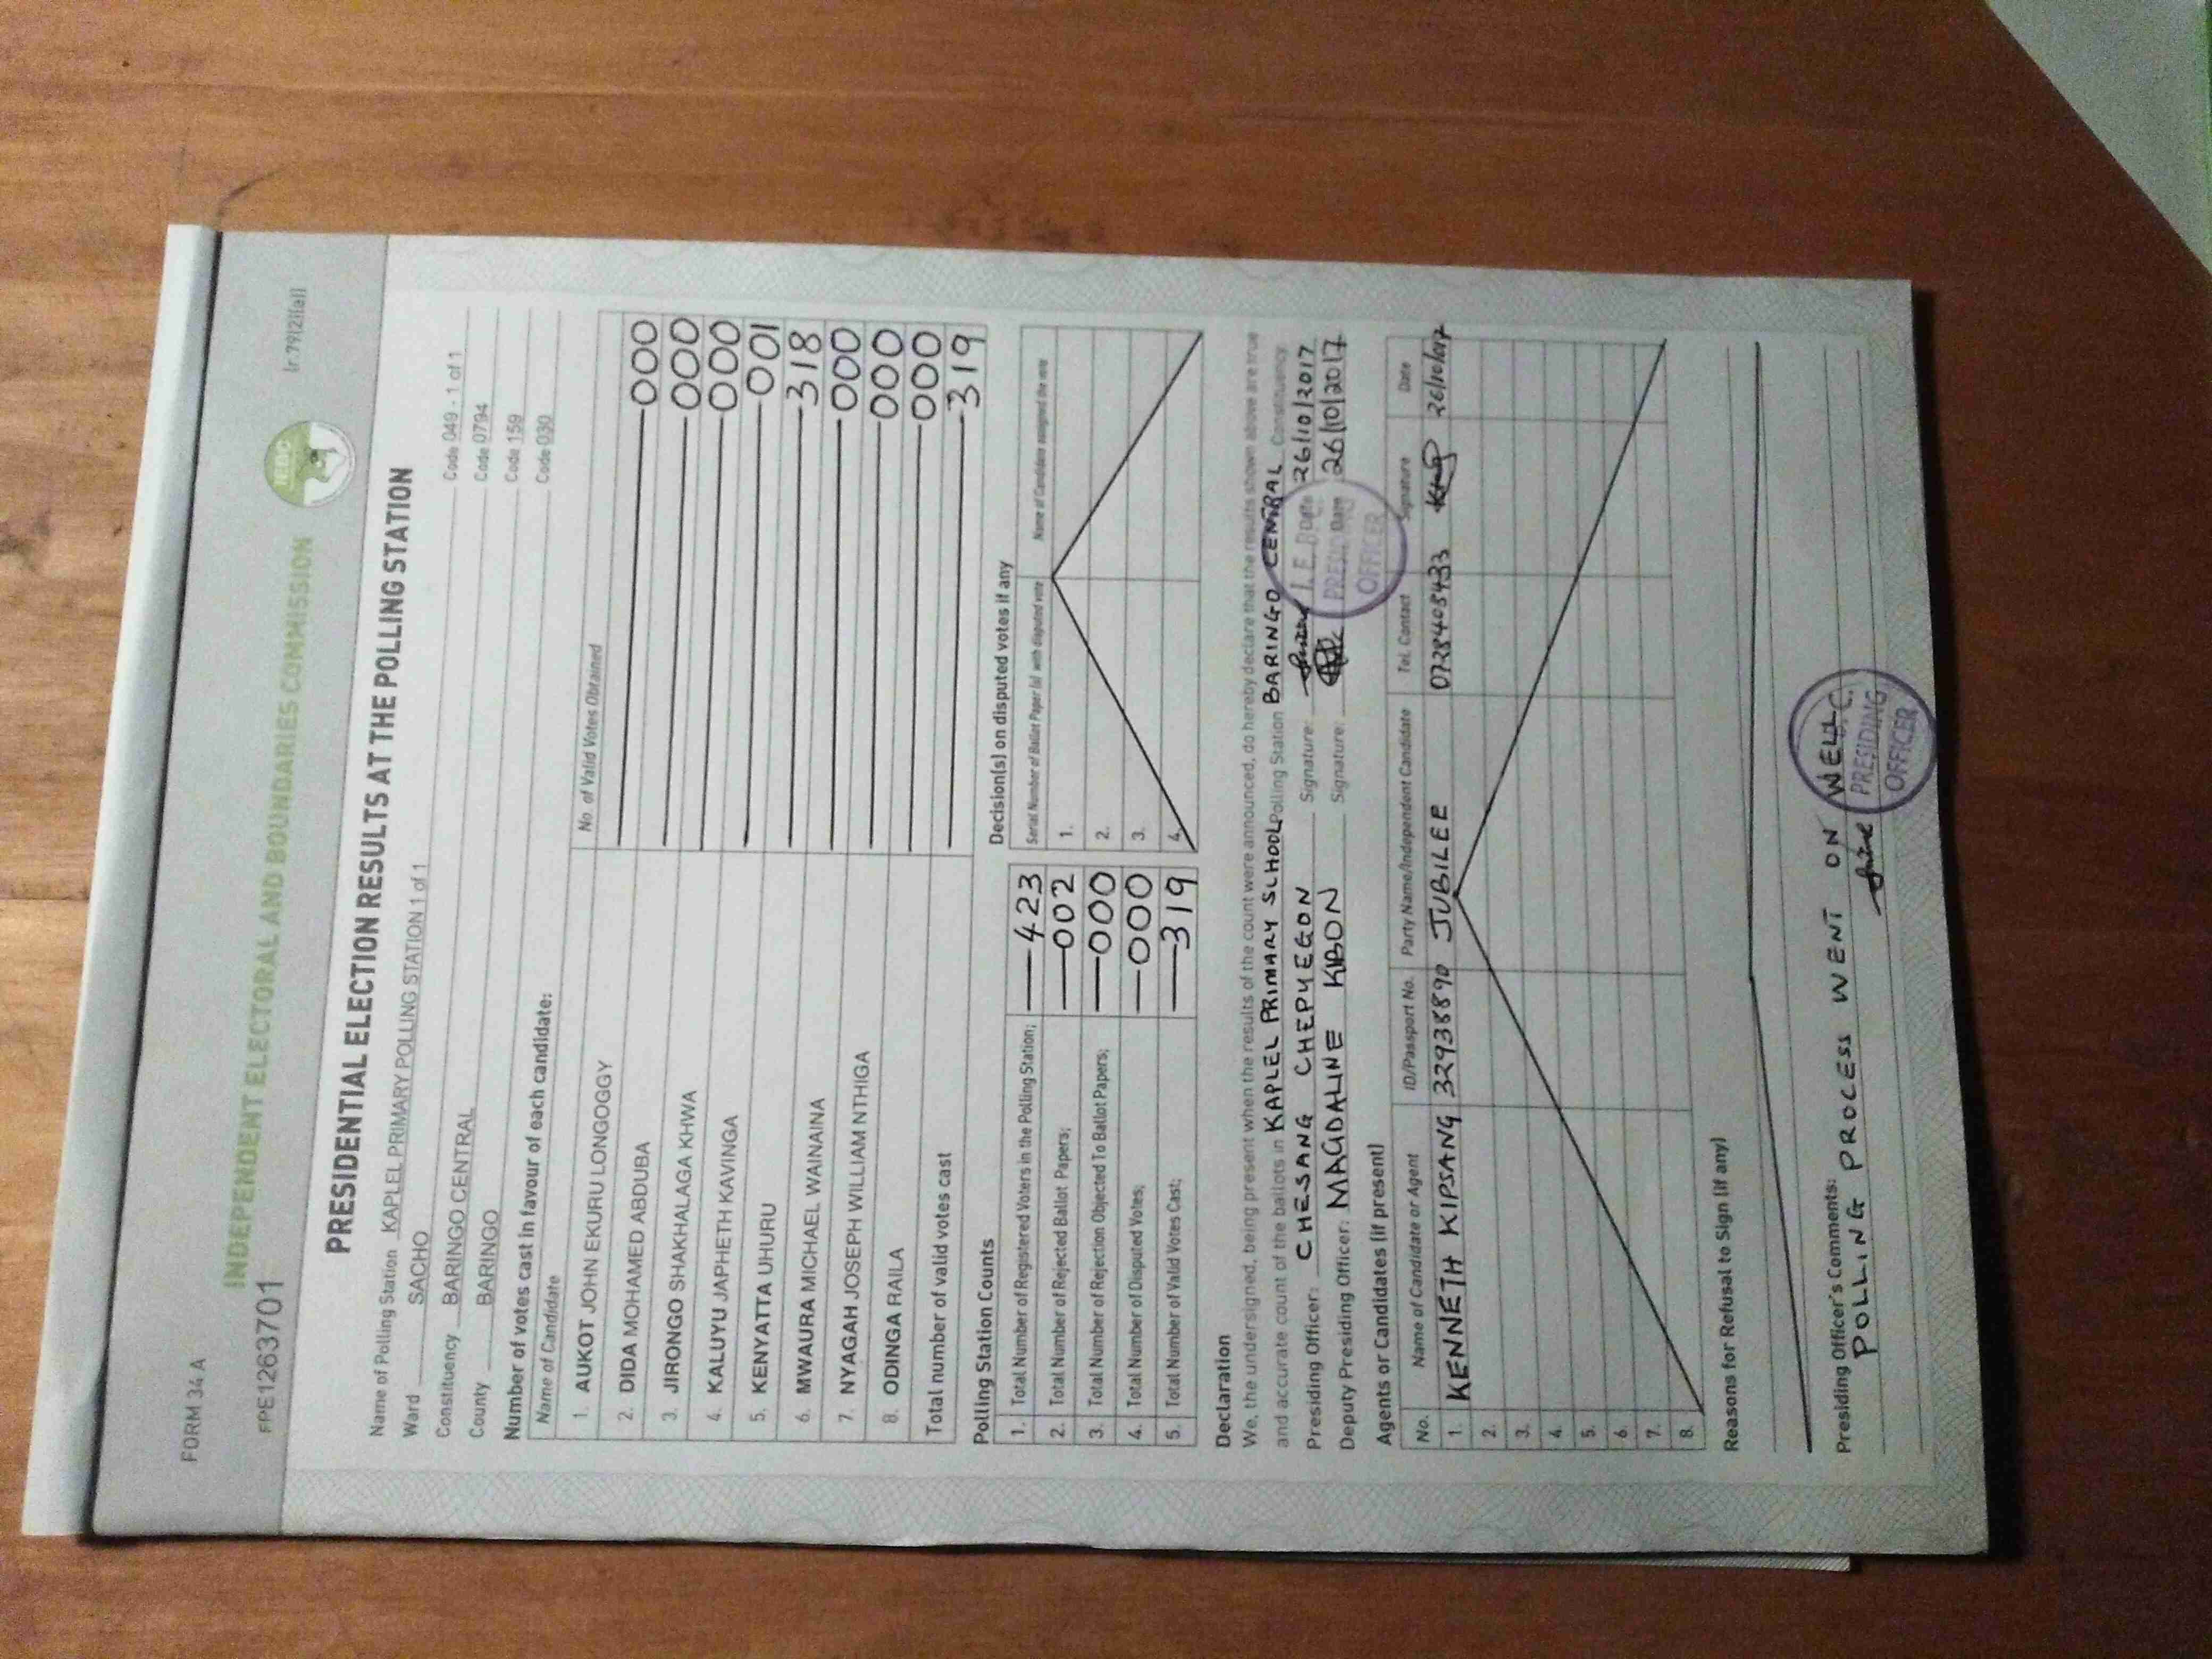 FORM 34A
(r.79(2)(a))
FPE1263701
IEBC
INDEPENDENT ELECTORAL AND BOUNDARIES COMMISSION
PRESIDENTIAL ELECTION RESULTS AT THE POLLING STATION
Name of Polling Station KAPLEL PRIMARY POLLING STATION 1 of 1 Code 049 - 1 of 1
Ward SACHO Code 0794
Constituency BARINGO CENTRAL Code 159
County BARINGO Code 030
Number of votes cast in favour of each candidate:
Name of Candidate No of Valid Votes Obtained
1. AUKOT JOHN EKURU LONGOGGY 000
2. DIDA MOHAMED ABDUBA 000
3. JIRONGO SHAKHALAGA KHWA 000
4. KALUYU JAPHETH KAVINGA 001
5. KENYATTA UHURU 318
6. MWAURA MICHAEL WAINAINA 000
7. NYAGAH JOSEPH WILLIAM NTHIGA 000
8. ODINGA RAILA 000
Total number of valid votes cast 319
Polling Station Counts
1. Total Number of Registered Voters in the Polling Station; 423
2. Total Number of Rejected Ballot Papers; 002
3. Total Number of Rejection Objected To Ballot Papers; 000
4. Total Number of Disputed Votes; 000
5. Total Number of Valid Votes Cast; 319
Decision(s) on disputed votes if any
Serial Number of Ballot Paper (s) with disputed vote Name of Candidate assigned the vote
1.
2.
3.
4.
Declaration
We, the undersigned, being present when the results of the count were announced, do hereby declare that the results shown above are true
and accurate count of the ballots in KAPLEL PRIMARY SCHOOL Polling Station BARINGO CENTRAL Constituency.
Presiding Officer: CHESANG CHEPYEGON Signature: Date 26/10/2017
Deputy Presiding Officer: MAGDALINE KIBON Signature: Date 26/10/2017
PRESIDING
OFFICER
Agents or Candidates (if present)
No. Name of Candidate or Agent ID/Passport No. Party Name/Independent Candidate Tel. Contact Signature Date
1. KENNETH KIPSANG 32938890 JUBILEE 0728405433 26/10/017
2.
3.
4.
5.
6.
7.
8.
Reasons for Refusal to Sign (if any)
Presiding Officer's Comments:
POLLING PROCESS WENT ON WELL
PRESIDING
OFFICER